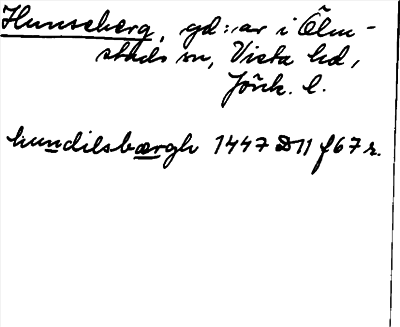 Hunseberg, gd:ar i Ölm-
stads sn, Vista hd,
Jönk. l.
hundilsbærgh 1447 D11 f67 r.